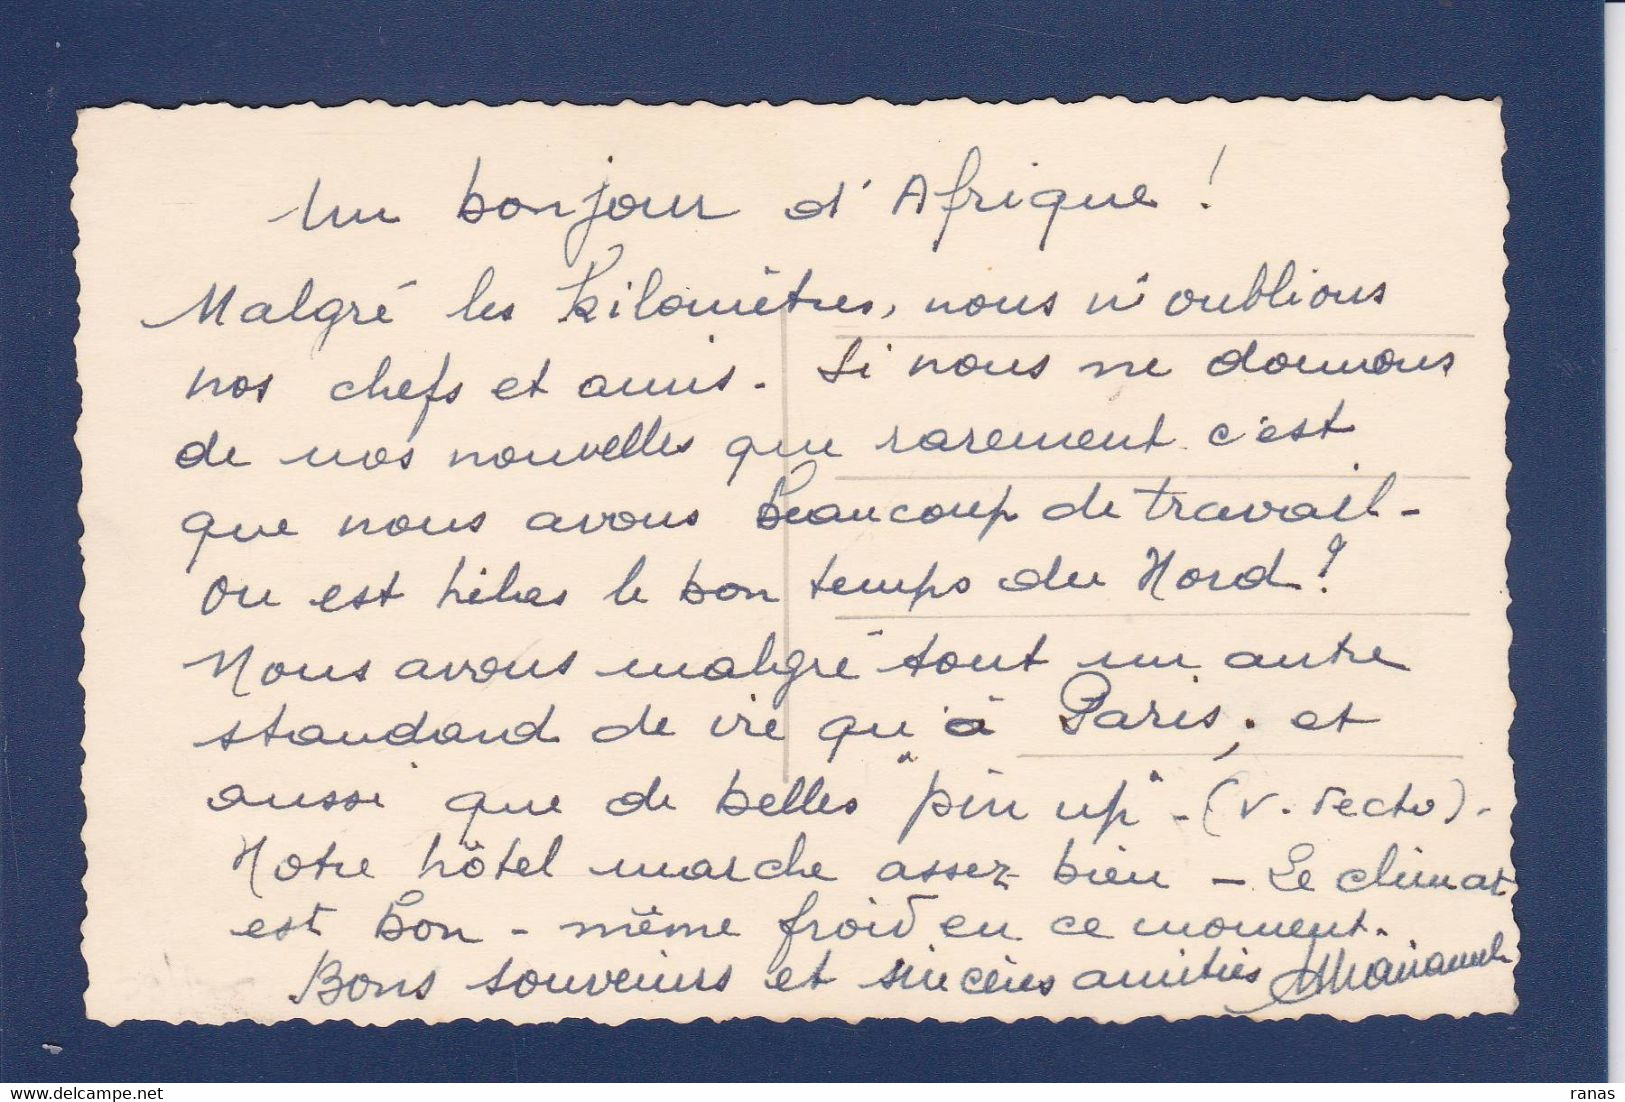 Un bonjour d'Afrique !
Malgré les kilomètres, nous n'oublions
nos chefs et amis. Si nous ne donnons
de nos nouvelles que rarement c'est
que nous avons beaucoup de travail -
Ou est hélas le bon temps du Nord ?
Nous avons malgré tout un autre
standard de vie qu'à Paris, et
aussi que de belles "pin up" - (v. recto) -
Notre hôtel marche assez bien - Le climat
est bon - même froid en ce moment.
Bons souvenirs et sincères amitiés
delcampe.net
ranas